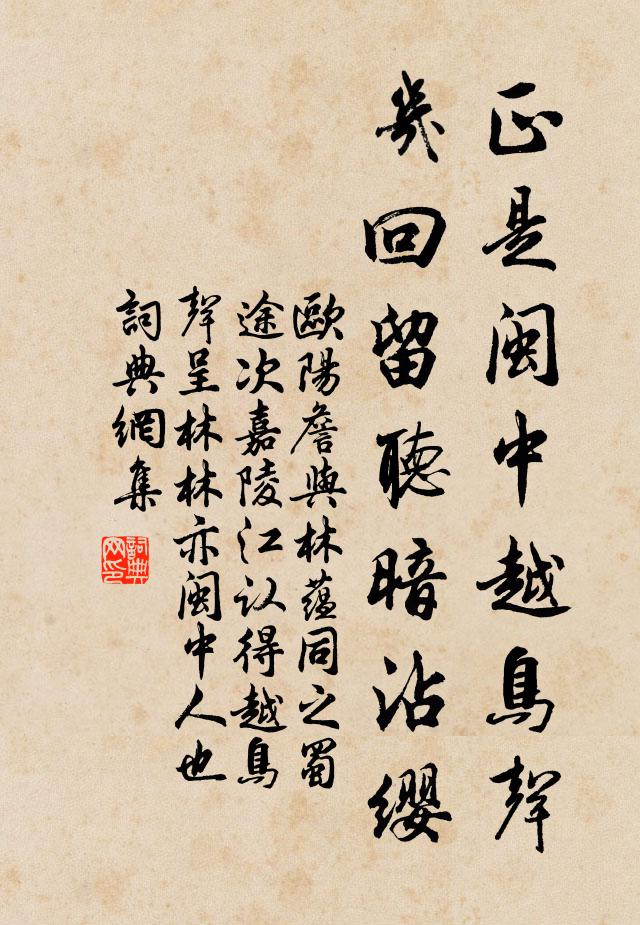 正是闽中越鳥聲
幾回留聽暗沾纓
歐陽詹與林蘊同之蜀
途次嘉陵江认得越鳥
聲呈林林亦闽中人也
詞典網集
詞典
网印